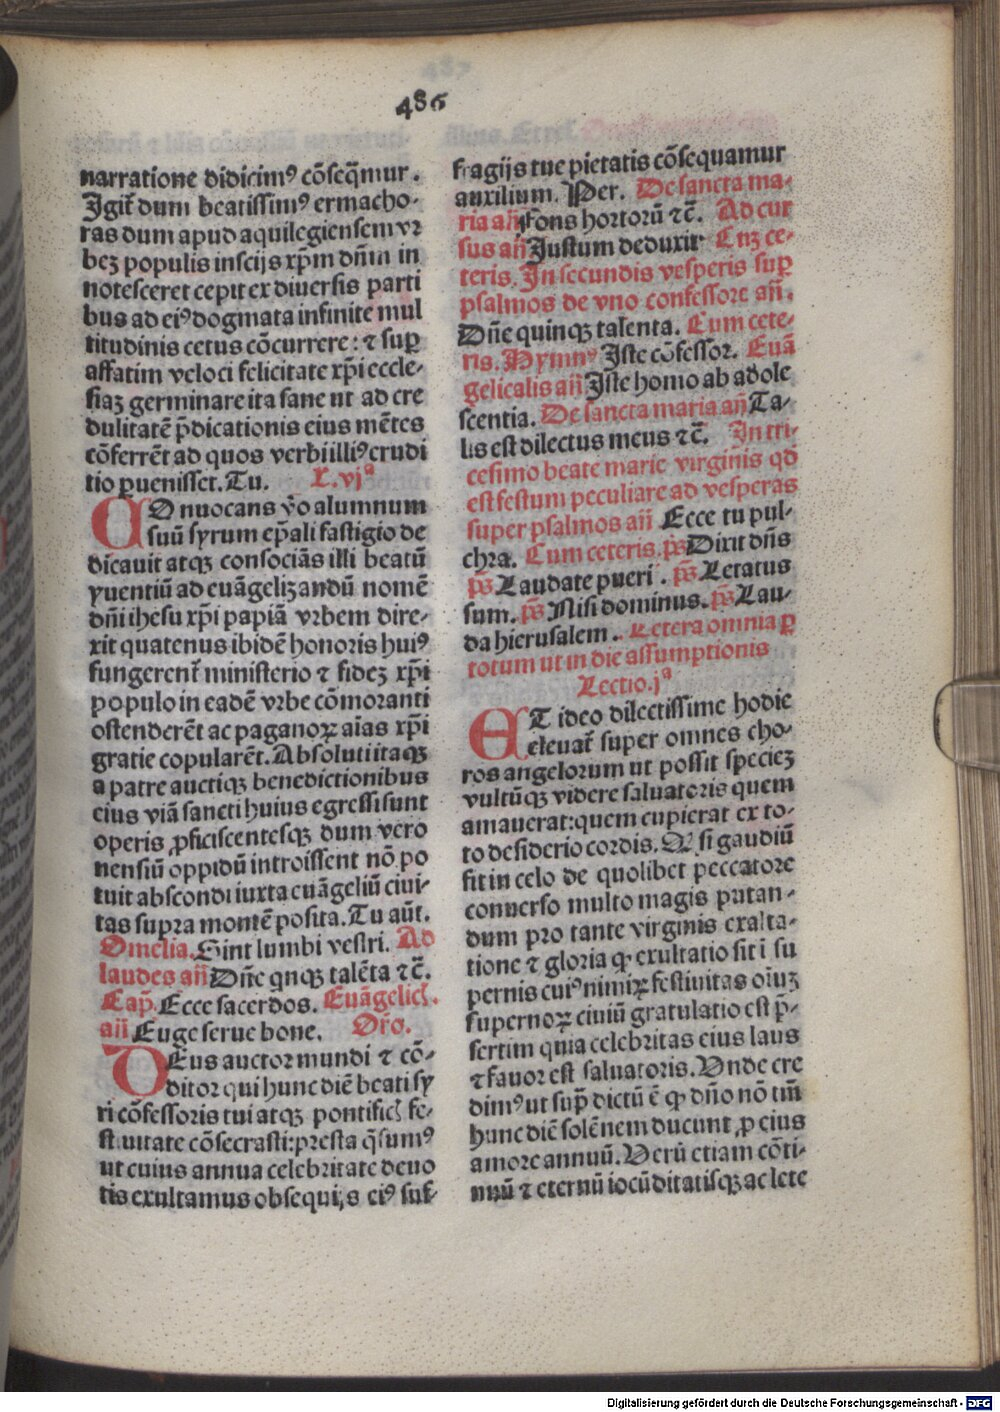 486
narratione didicimꝰ cõseq̃mur .
Igit᷑ dum beatissimꝰ ermacho-
ras dum apud aquilegiensem vr
bez populis inscijs xp̃m dñm in
notesceret cepit ex diuersis parti
bus ad eiꝰ dogmata infinite mul
titudinis cetus cõcurrere: ⁊ suꝑ
affatim veloci felicitate xp̃i eccle-
siaz germinare ita sane ut ad cre
dulitatẽ p̃dicationis eius mẽtes
cõferrẽt ad quos verbi illiꝰ erudi
tio puenisset. Tu. L. vjª
Aduocans v̾o alumnum
suũ syrum ep̃ali fastigio de
dicauit atqꝫ consociãs illi beatũ
yuentiũ ad euãgelizandũ nomẽ
dñi ihesu xp̃i papiã vrbem dire-
xit quatenus ibidẽ honoris huiꝰ
fungerent᷑ ministerio ⁊ fidez xp̃i
populo in eadẽ vrbe cõmoranti
ostenderẽt ac paganoꝝ aĩas xp̃i
gratie copularẽt. Absoluti itaqꝫ
a patre auctiqꝫ benedictionibus
eius viã sancti huius egressi sunt
operis ꝓficiscentesqꝫ dum vero
nensiũ oppidũ introissent nõ po
tuit abscondi iuxta euãgeliũ ciui-
tas supra montẽ posita. Tu aũt.
Omelia. Sint lumbi vestri. Ad
laudes añ Dñe qnqꝫ talẽta ⁊c̃.
Cap̃. Ecce sacerdos. Euãgelicƚ.
añ Euge serue bone. Oro.
DEus auctor mundi ⁊ cõ-
ditor qui hunc diẽ beati sy
ri cõfessoris tui atqꝫ pontificƚ fe-
stiuitate cõsecrasti: presta q̃sumꝰ
ut cuius annua celebritate deuo
tis exultamus obsequijs eiꝰ suf-
fragijs tue pietatis cõsequamur
auxilium. Per. De sancta ma-
ria añ Fons hortorũ ⁊c̃. Ad cur
sus añ Justum deduxit Cuʒ ce-
teris. In secundis vesperis suꝑ
psalmos de vno confessore añ.
Dñe quinqꝫ talenta. Cum cete-
ris. Hymnꝰ Iste cõfessor. Euã
gelicalis añ Iste homo ab adole
scentia. De sancta maria añ Ta-
lis est dilectus meus ⁊c̃. In tri-
cesimo beate marie virginis qđ
est festum peculiare ad vesperas
super psalmos añ Ecce tu pul-
chra. Cum ceteris. p̃s Dixit dñs
p̃s Laudate pueri . p̃s Letatus
sum. p̃s Nisi dominus. p̃s Lau-
da hierusalem . Cetera omnia ꝑ
totum ut in die assumptionis
Lectio. jª
ET ideo dilectissime hodie
eleuat᷑ super omnes cho-
ros angelorum ut possit speciez
vultũqꝫ videre saluatoris quem
amauerat: quem cupierat ex to-
to desiderio cordis. Q si gaudiũ
fit in celo de quolibet peccatore
conuerso multo magis putan-
dum pro tante virginis exalta-
tione ⁊ gloria ꝙ exultatio sit ĩ su
pernis cuiꝰ nimiꝝ festiuitas oĩuʒ
supernoꝝ ciuiũ gratulatio est p̃-
sertim quia celebritas eius laus
⁊ fauor est saluatoris. Vnde cre
dimꝰ ut sup̃ dictũ ẽ ꝙ dño nõ tm̃
hunc diẽ solẽnem ducunt ꝓ eius
amore annuũ. Verũ etiam cõti-
nuũ ⁊ eternũ iocũditatisqꝫ ac lete
Digitalisierung gefördert durch die Deutsche Forschungsgemeinschaft - DFG